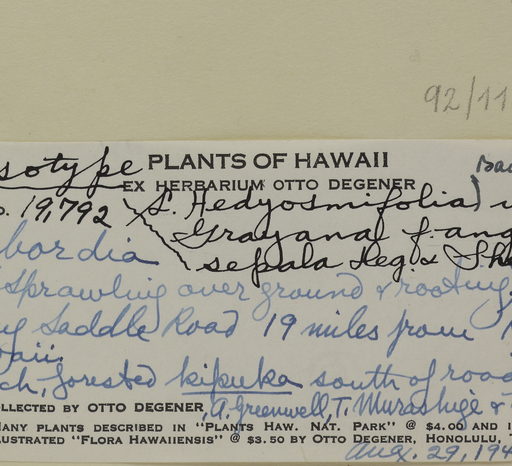 92/11
sotype PLANTS OF HAWAII
EX HERBARIUM OTTO DEGENER
o. 19,792 S. Hedyosmifolia)
Grayana f. ang
bordia sepala Deg. & She
sprawling over ground & rooting
Saddle Road 19 miles from
aii.
ch, forested kipuka south of road
OLLECTED BY OTTO DEGENER, A. Greenwell, T. Murashige &
MANY PLANTS DESCRIBED IN "PLANTS HAW. NAT. PARK" @ $4.00 AND I
LUSTRATED "FLORA HAWAIIENSIS" @ $3.50 BY OTTO DEGENER, HONOLULU, T
Aug. 29, 194